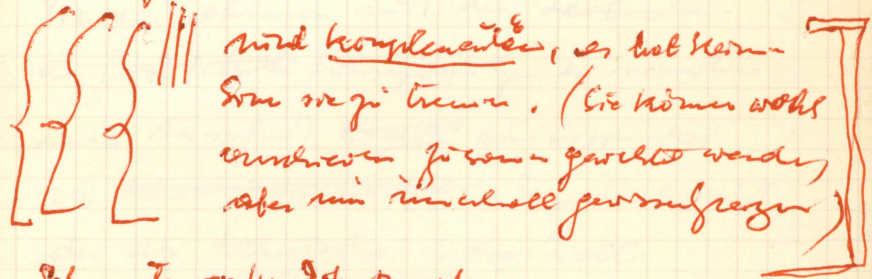 sind komplementär, es hat keinen
Sinn sie zu trennen. (Sie können wohl
verschieden zusammen gesetzt werden,
aber nur innerhalb gewisser Grenzen)